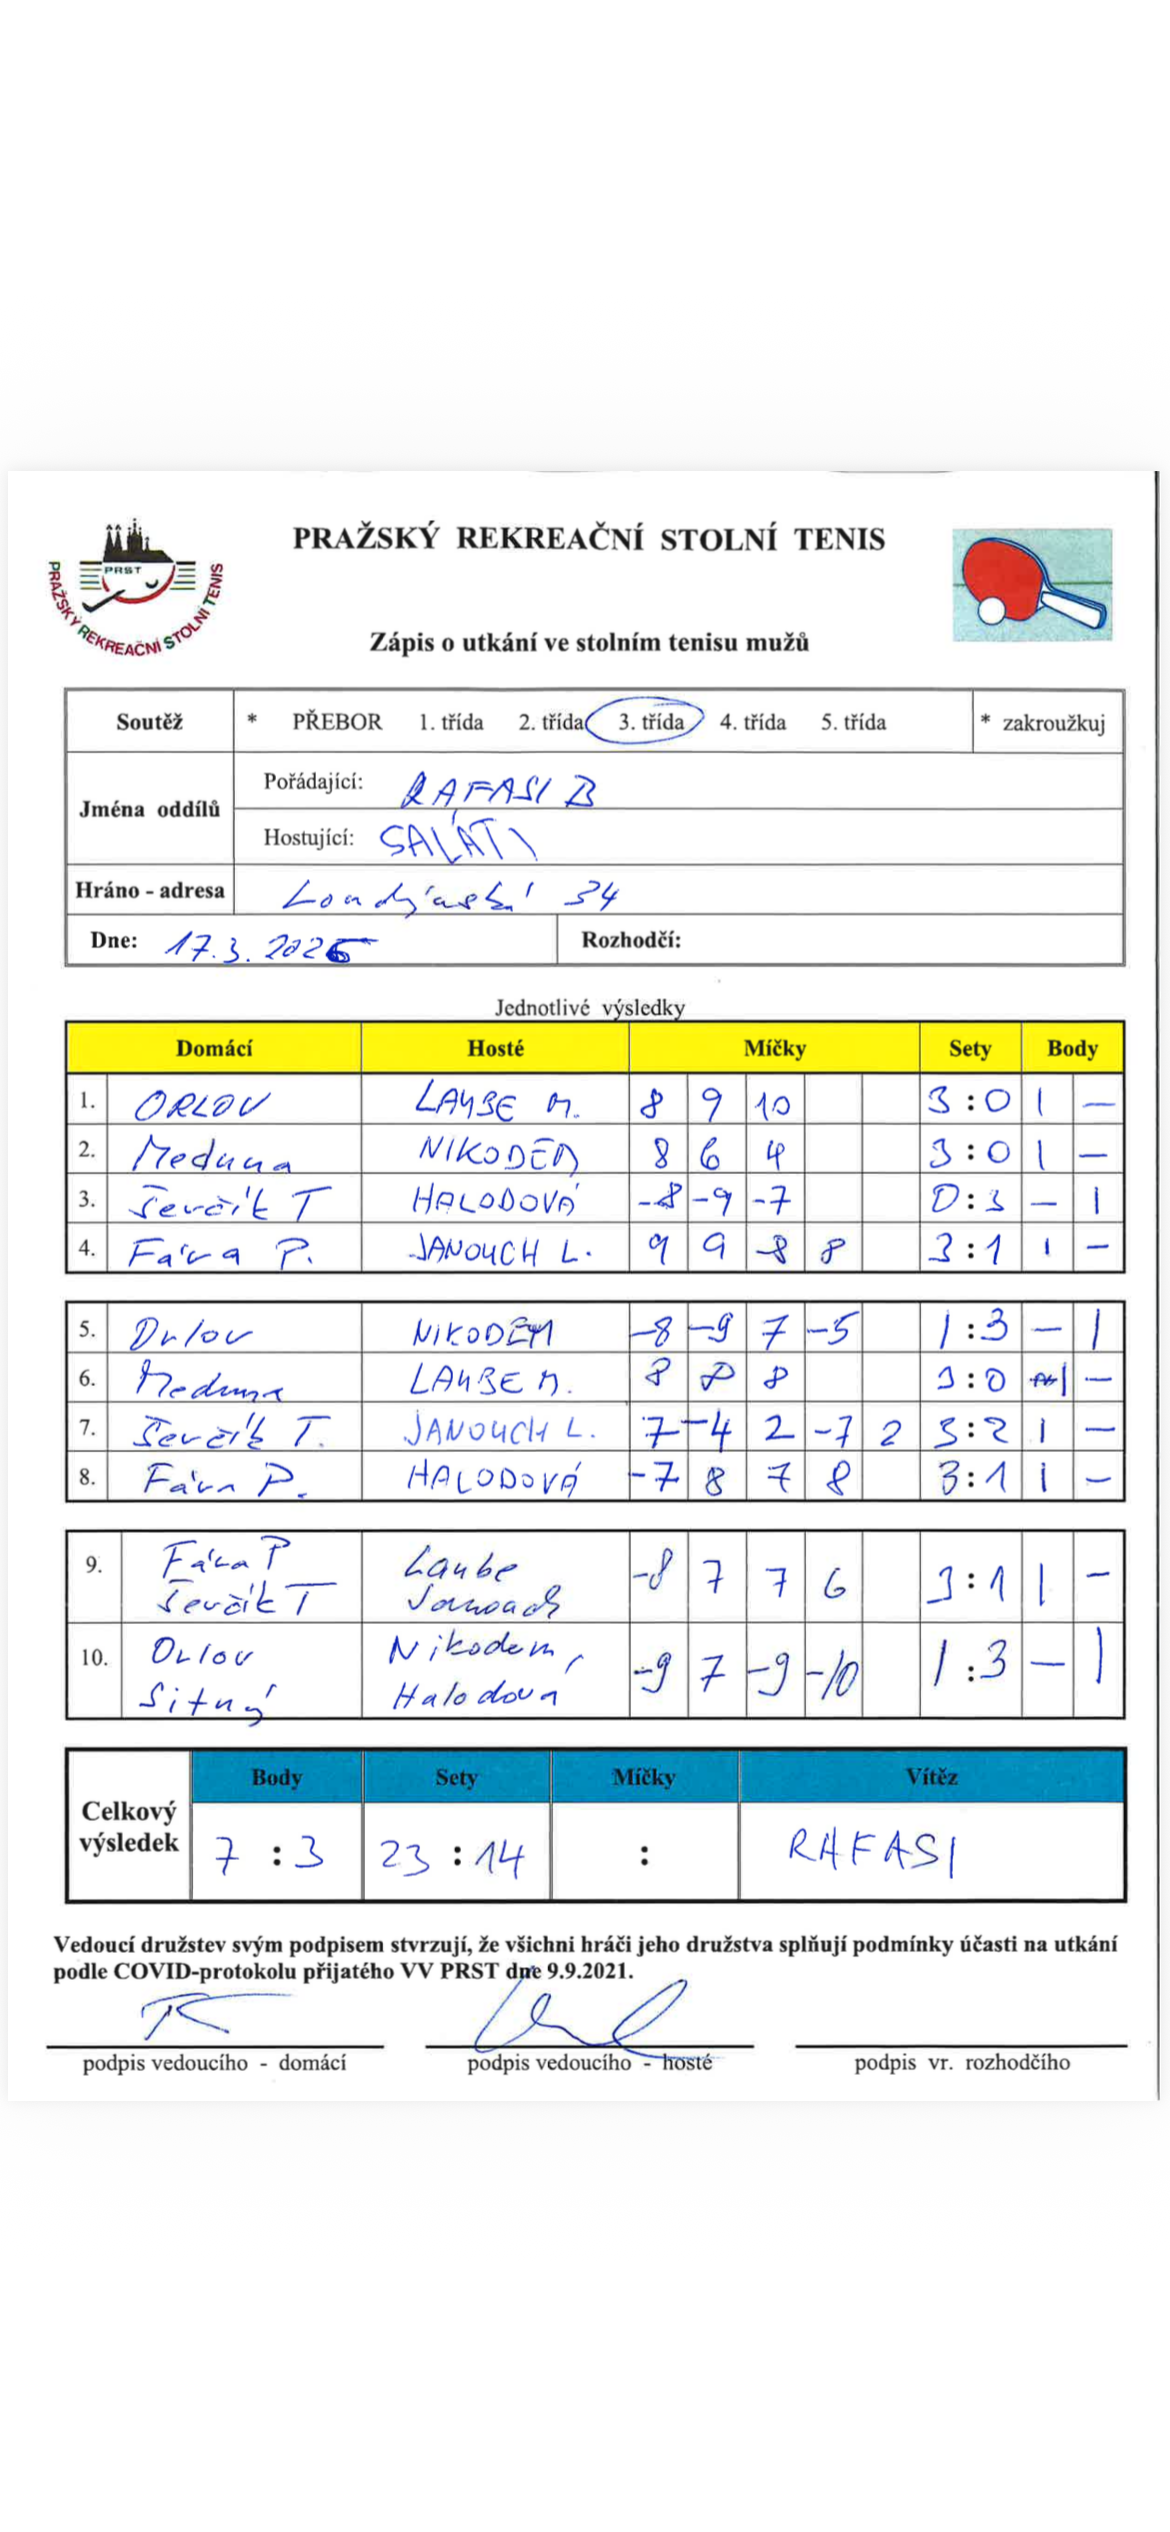 PRAŽSKÝ REKREAČNÍ STOLNÍ TENIS
PRST
PRAŽSKÝ REKREAČNÍ STOLNÍ TENIS
Zápis o utkání ve stolním tenisu mužů
Soutěž * PŘEBOR 1. třída 2. třída 3. třída 4. třída 5. třída * zakroužkuj
Jména oddílů
Pořádající: RAFASI B
Hostující: SALÁTI
Hráno - adresa Londýnská 34
Dne: 17.3. 2026 Rozhodčí:
Jednotlivé výsledky
Domácí Hosté Míčky Sety Body
1. ORLOV LAUBE M. 8 9 10 3:0 1 –
2. Meduna NIKODÉM 8 6 4 3:0 1 –
3. Ševčík T HALODOVÁ -8 -9 -7 0:3 – 1
4. Fáva P. JANOUCH L. 9 9 -8 8 3:1 1 –
5. Orlov NIKODÉM -8 -9 7 -5 1:3 – 1
6. Meduna LAUBE M. 8 8 8 3:0 1 –
7. Ševčík T. JANOUCH L. 7 -4 2 -7 2 3:2 1 –
8. Fáva P. HALODOVÁ -7 8 7 8 3:1 1 –
9. Fáva P Laube -8 7 7 6 3:1 1 –
Ševčík T Janouch
10. Orlov Nikodem, -9 7 -9 -10 1:3 – 1
Sitný Halodova
Celkový výsledek
Body Sety Míčky Vítěz
7 : 3 23 : 14 : RAFASI
Vedoucí družstev svým podpisem stvrzují, že všichni hráči jeho družstva splňují podmínky účasti na utkání
podle COVID-protokolu přijatého VV PRST dne 9.9.2021.
podpis vedoucího - domácí podpis vedoucího - hosté podpis vr. rozhodčího